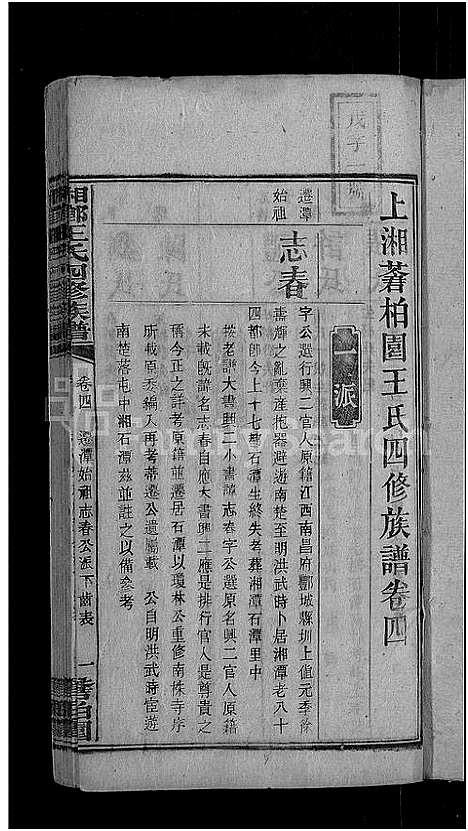 上湘蒼柏園王氏四修族譜卷四
一派
遷潭始祖
志春
字公選行興二官人原籍江西南昌府酆城縣圳上值元季徐
壽輝之亂棄產抱器避遊南楚至明洪武時卜居湘潭老八十
四都即今上十七都石潭生終失考葬湘潭石潭里中
按老譜大書興二小書諱志春字公選原名興二官人原籍
未載既諱名志春自應大書興二應是排行官人是尊貴之
稱今正之詳考原籍並遷居石潭以瓊林公重修南株寺序
所載原委編入再考蒂遷公遺囑載 公自明洪武時宦遊
南楚落屯中湘石潭茲並註之以備參考
湘鄉王氏四修族譜
卷四
遷潭始祖志春公派下齒表
一
蒼柏園